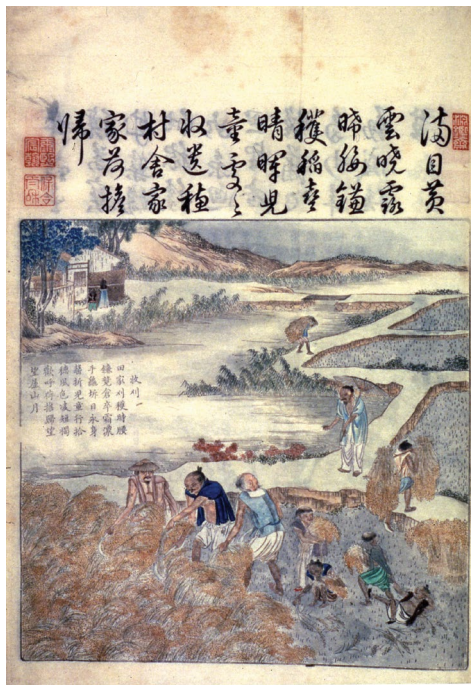 滿目黃
雲曉露
晞腰鎌
穫稻喜
晴暉兒
童處々
收遺穗
村舍家
家荷擔
歸
收刈
田家刈穫時腰
鐮競倉卒霜濃
手龜坼日永身
罄折兒童行拾
穗風色凌短褐
歡呼荷擔歸望
望屋山月